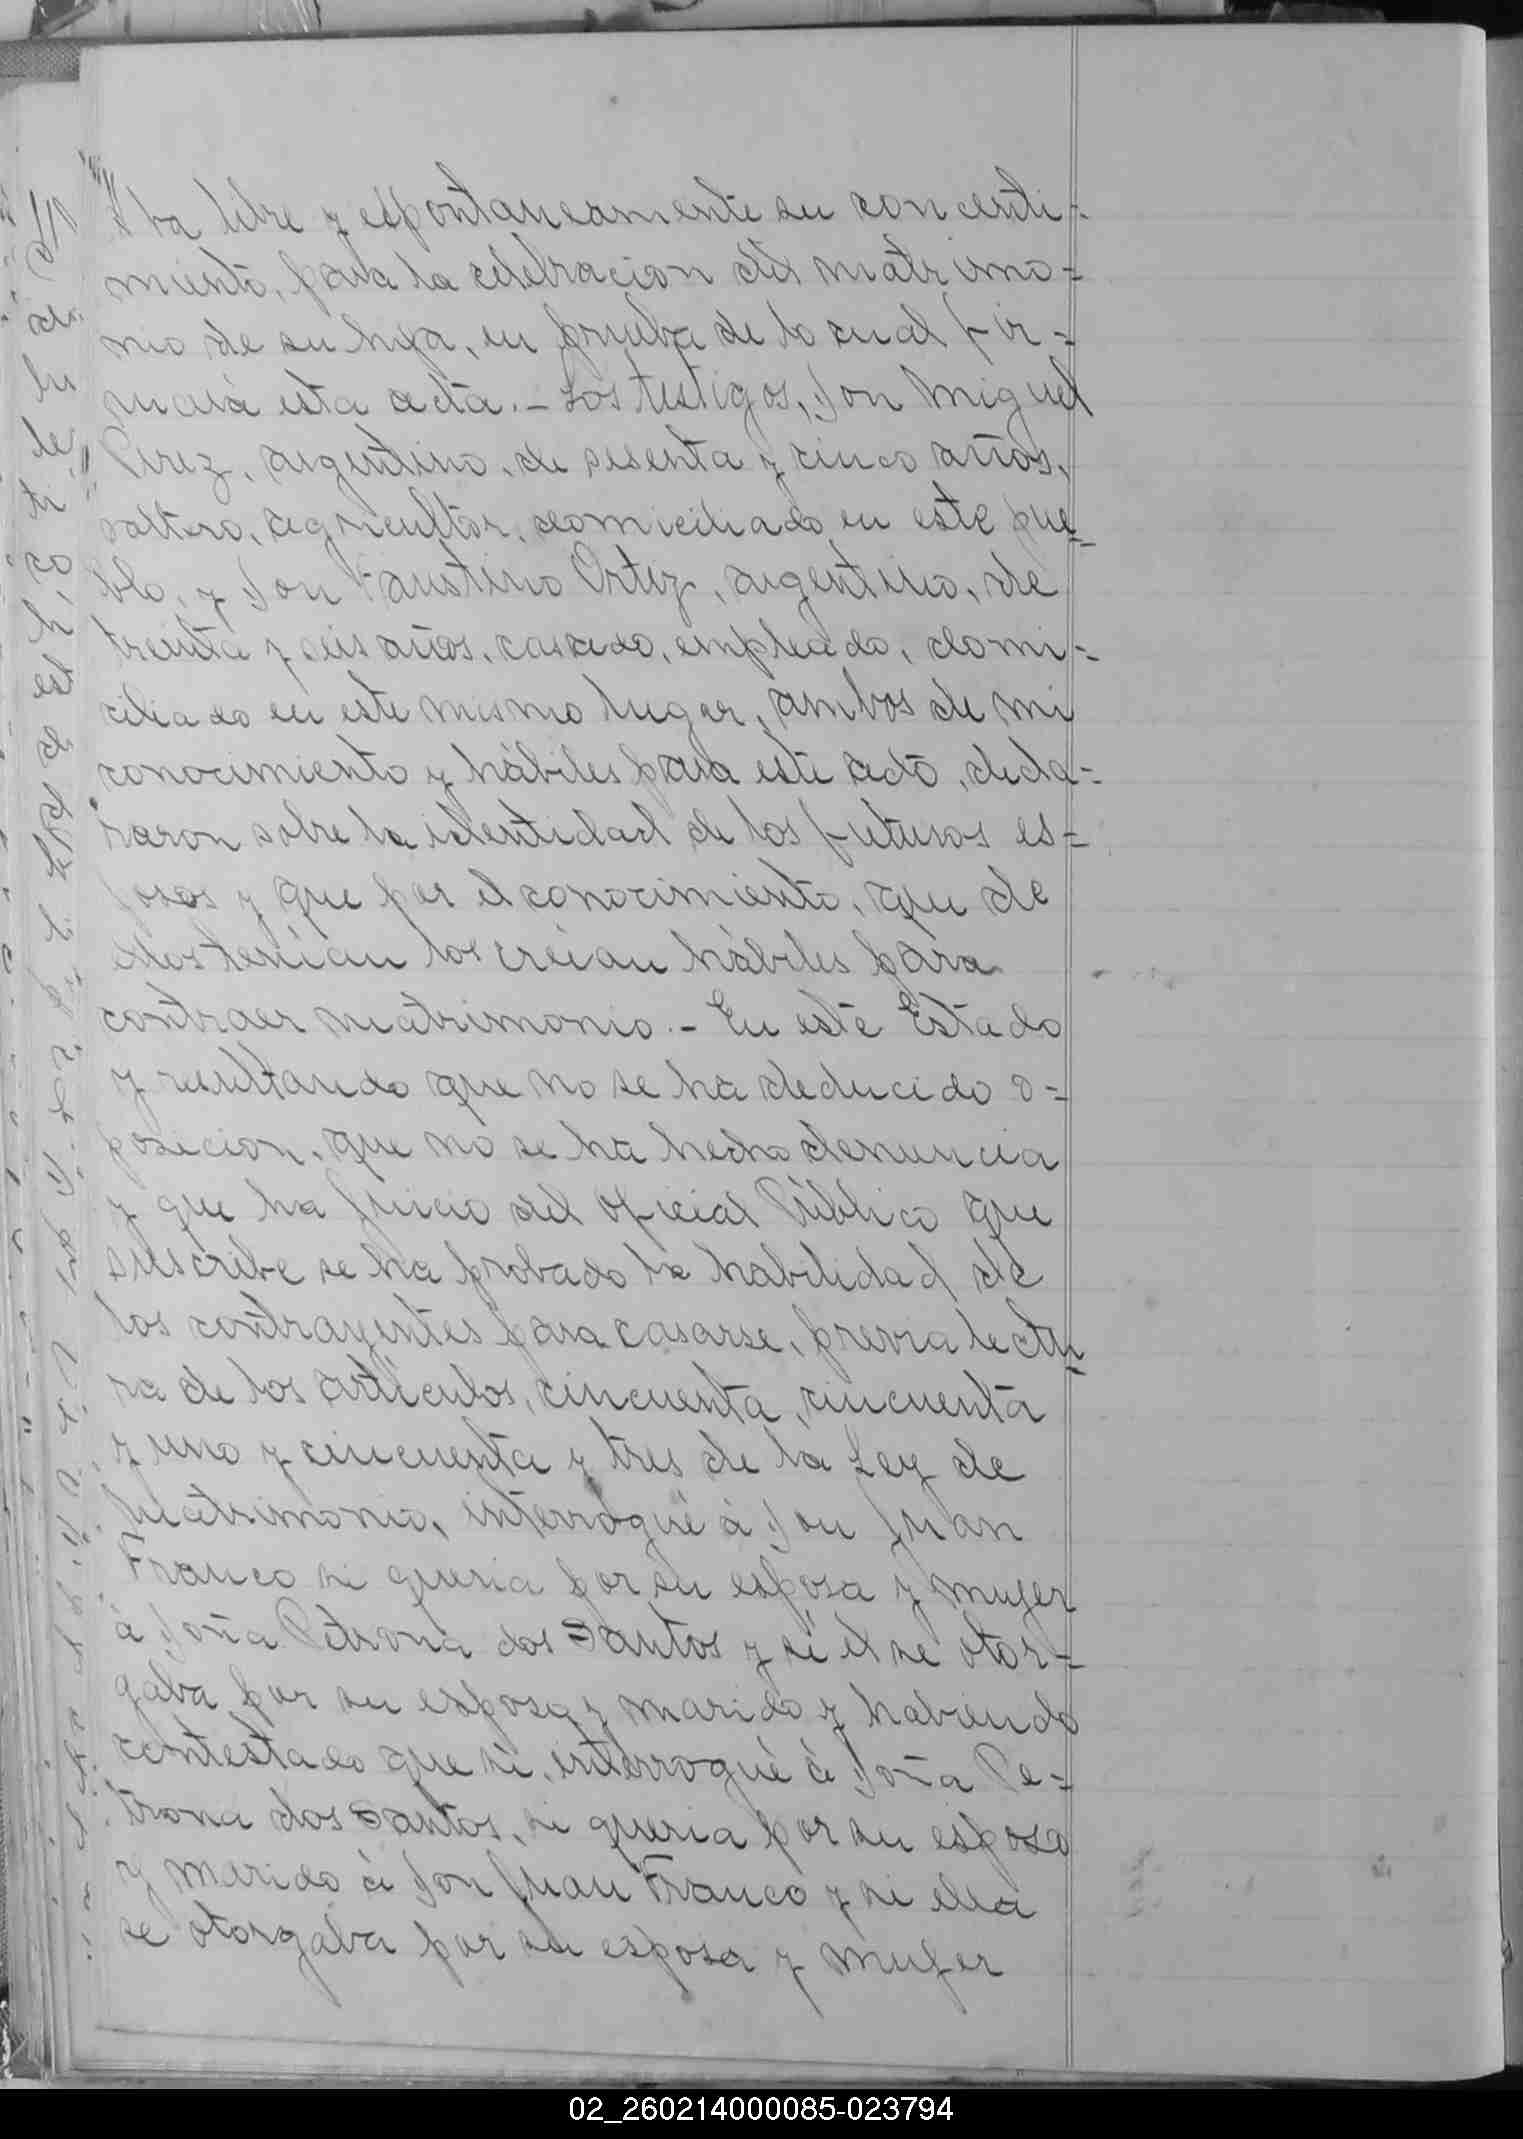 ta libre y espontaneamente su concenti-
miento, para la celebracion del matrimo-
nio de su hija, en prueba de lo cual fir-
mará esta acta.- Los testigos, Don Miguel
Perez, argentino, de sesenta y cinco años,
soltero, agricultor, domiciliado en este pue-
blo, y Don Faustino Ortiz, argentino, de
treinta y seis años, casado, empleado, domi-
ciliado en este mismo lugar, ambos de mi
conocimiento y hábiles para este acto, decla-
raron sobre la identidad de los futuros es-
posos y que por el conocimiento, que de
ellos tenian los creian hábiles para
contraer matrimonio.- En este Estado
y resultando que no se ha deducido o-
posicion, que no se ha hecho denuncia
y que ha juicio del oficial Público que
suscribe se ha probado la habilidad de
los contrayentes para casarse, previa lectu-
ra de los artículos, cincuenta, cincuenta
y uno y cincuenta y tres de la Ley de
Matrimonio, interrogué á Don Juan
Franco si queria por su esposa y mujer
á Doña Petrona dos Santos y si él se otor-
gaba por su esposo y marido y habiendo
contestado que si, interrogué á Doña Pe-
trona dos Santos, si queria por su esposo
y marido á Don Juan Franco y si ella
se otorgaba por su esposa y mujer
02_260214000085-023794